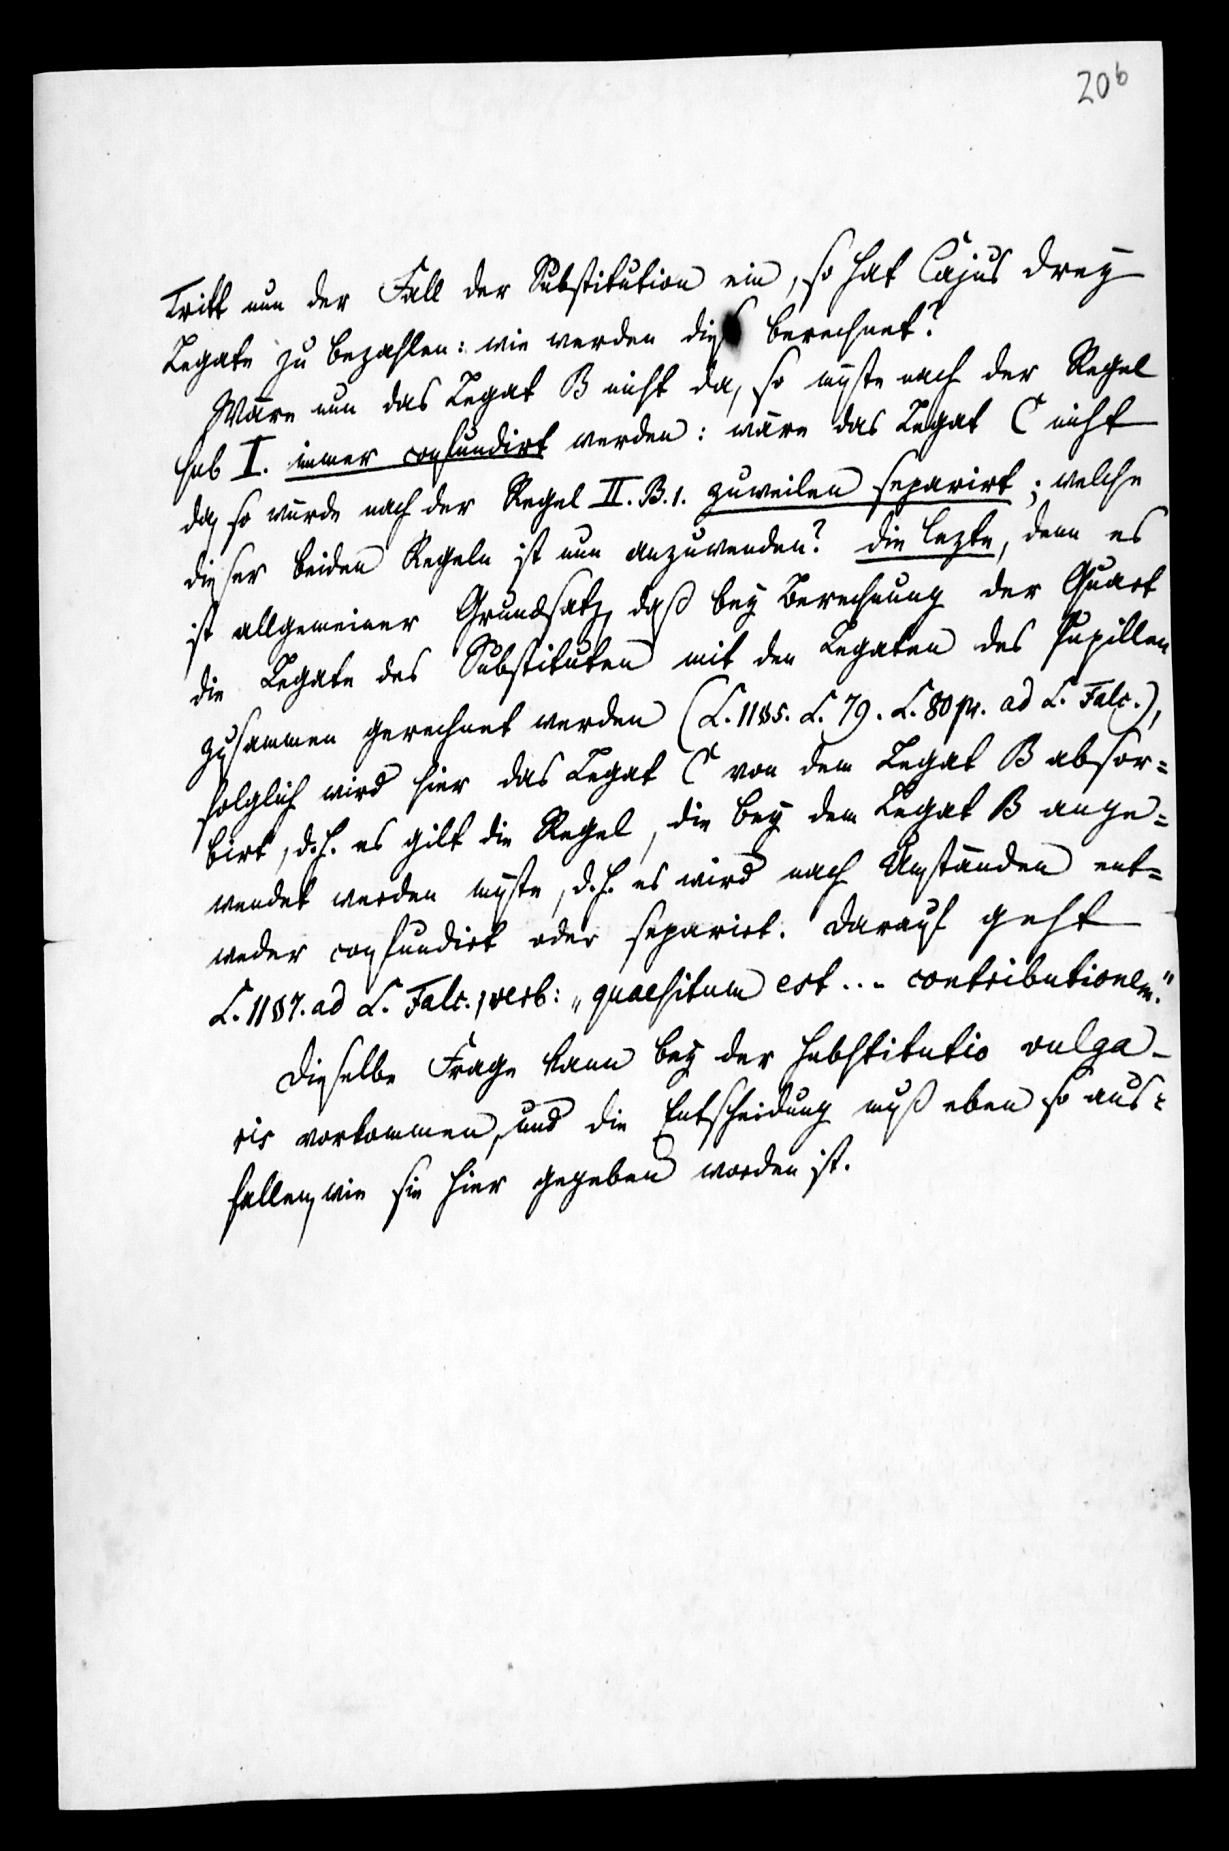 20b
Tritt nun der Fall der Substitution ein, so hat Cajus drey
Legate zu bezahlen: wie werden diese berechnet?
Wäre nun das Legat B nicht da, so müste nach der Regel
sub I. immer confundirt werden: wäre das Legat C nicht
da, so würde nach der Regel II. B. 1. zuweilen separirt; welche
dieser beiden Regeln ist nun anzuwenden? die lezte, denn es
ist allgemeiner Grundsatz, daß bey Berechnung der Quart
die Legate des Substituten mit den Legaten des Pupillen
zusammen gerechnet werden (L. 11 § 5. L. 79. L. 80 pr. ad L. Falc.),
folglich wird hier das Legat C von dem Legat B absor=
birt, d. h. es gilt die Regel, die bey dem Legat B ange=
wendet werden müste, d. h. es wird nach Umständen ent=
weder confundirt oder separirt. Darauf geht
L. 11 § 7. ad L. Falc., verb: „quaesitum est... contributionem."
Dieselbe Frage kann bey der substitutio vulga-
ris vorkommen, und die Entscheidung muß eben so aus=
fallen, wie sie hier gegeben worden ist.